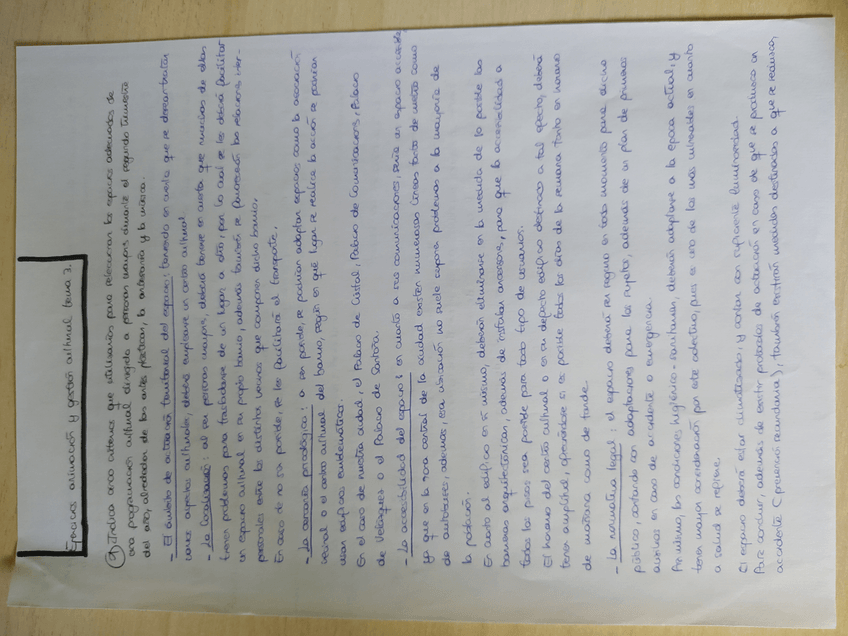 Ejercicios animación y gestión cultural tema 7.
9) Indica cinco criterios que utilizarías para seleccionar los espacios adecuados de
una programación cultural dirigida a personas mayores durante el segundo trimestre
del año, alrededor de las artes plásticas, la artesanía y la música.
- El ámbito de actuación territorial del espacio: teniendo en cuenta que se desean tratar
varios aspectos culturales, deberá emplearse un centro cultural
- La localización: al ser personas mayores, deberá tenerse en cuenta que muchas de ellas
tienen problemas para trasladarse de un lugar a otro, por lo cual se les deberá facilitar
un espacio cultural en su propio barrio, además también se favorecerán las relaciones inter-
personales entre los distintos vecinos que componen dicho barrio.
En caso de no ser posible, se les facilitará el transporte.
- La cercanía psicológica: a ser posible, se podrían adaptar espacios como la asociación
vecinal o el centro cultural del barrio, según en qué lugar se realice la acción se podrían
usar edificios emblemáticos.
En el caso de nuestra ciudad, el Palacio de Cristal, Palacio de Comunicaciones, Palacio
de Velázquez o el Palacio de Santoña.
- La accesibilidad del espacio: en cuanto a sus comunicaciones, sería un espacio accesible,
ya que en la zona central de la ciudad existen numerosas líneas tanto de metro como
de autobuses, además, esa ubicación no suele suponer problemas a la mayoría de
la población.
En cuanto al edificio en sí mismo, deberán eliminarse en la medida de lo posible las
barreras arquitectónicas, además de instalar ascensores, para que la accesibilidad a
todos los pisos sea posible para todo tipo de usuarios.
El horario del centro cultural o en su defecto edificio destinado a tal efecto, deberá
tener amplitud, ofreciéndose si es posible todos los días de la semana tanto en horario
de mañana como de tarde.
- La normativa legal: el espacio deberá ser seguro en todo momento para dicho
público, contando con adaptaciones para los sujetos, además de un plan de primeros
auxilios en caso de accidente o emergencia.
Por último, las condiciones higiénico-sanitarias, deberán adaptarse a la época actual, y
tener mayor consideración por este colectivo, pues es uno de los más vulnerables en cuanto
a salud se refiere.
El espacio deberá estar climatizado y contar con suficiente luminosidad.
Para concluir, además de existir protocolos de actuación en caso de que se produzca un
accidente (prevención secundaria), también existirán medidas destinadas a que se reduzca,